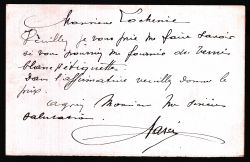 Monsieur
Veuillez je vous prie me faire savoir
si vous pourriez me fournir du vernis
blanc étiquette.
Dans l'affirmative veuillez donner le
prix.
Monsieur mes sincères
salutations.